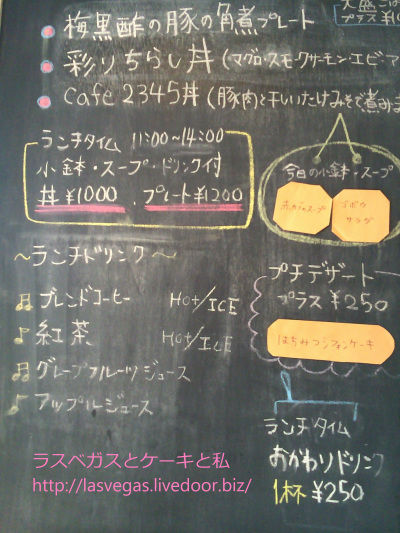 大盛
プラス
梅黒酢の豚の角煮プレート
彩りちらし丼 (マグロ・スモークサーモン・エビ・ア
Cafe 2345丼 (豚肉と干しいたけみそで煮
ランチタイム 11:00~14:00
小鉢・スープ・ドリンク付
丼 ¥1000 . プレート ¥1200
今日の小鉢・スープ
スープ
サラダ
~ランチドリンク~
ブレンドコーヒー HOT/ICE
紅茶 HOT/ICE
グレープフルーツジュース
アップルジュース
プチデザート
プラス ¥250
はちみつシフォンケーキ
ランチタイム
おかわりドリンク
1杯 ¥250
ラスベガスとケーキと私
http://lasvegas.livedoor.biz/